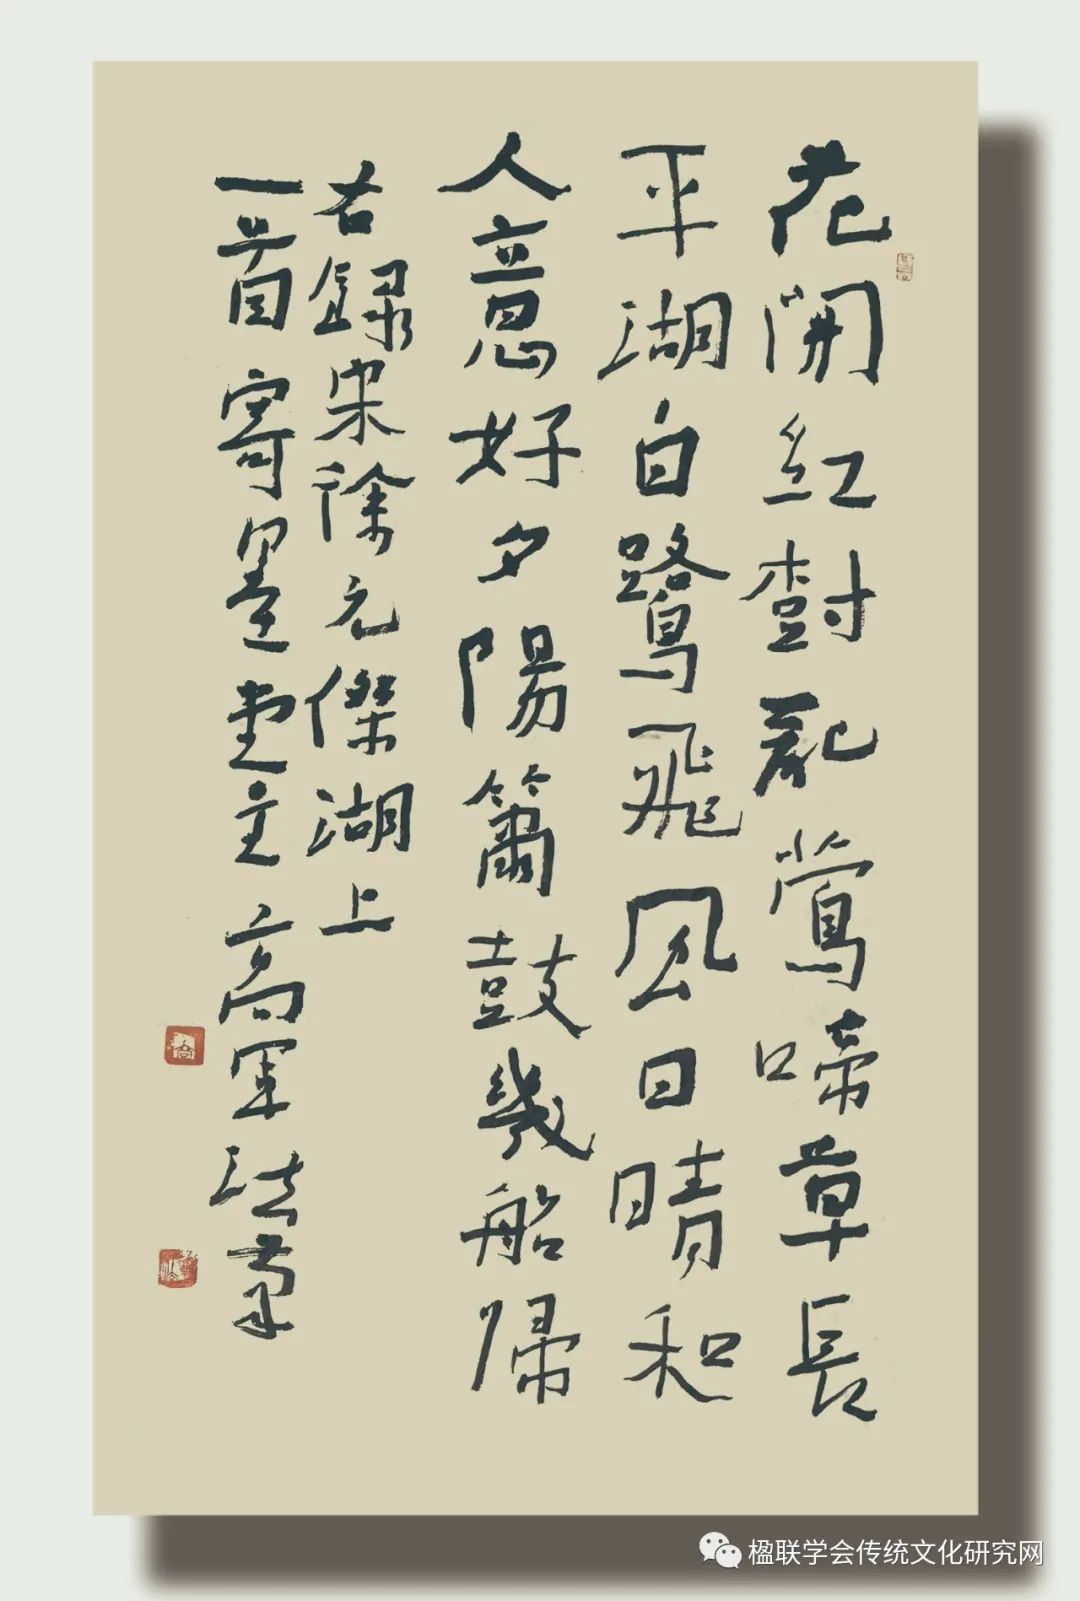 花開紅樹亂鶯啼草長
平湖白鷺飛風日晴和
人意好夕陽簫鼓幾船歸
右録宋徐元傑湖上
一首寄墨堂主高軍法書
楹联学会传统文化研究网